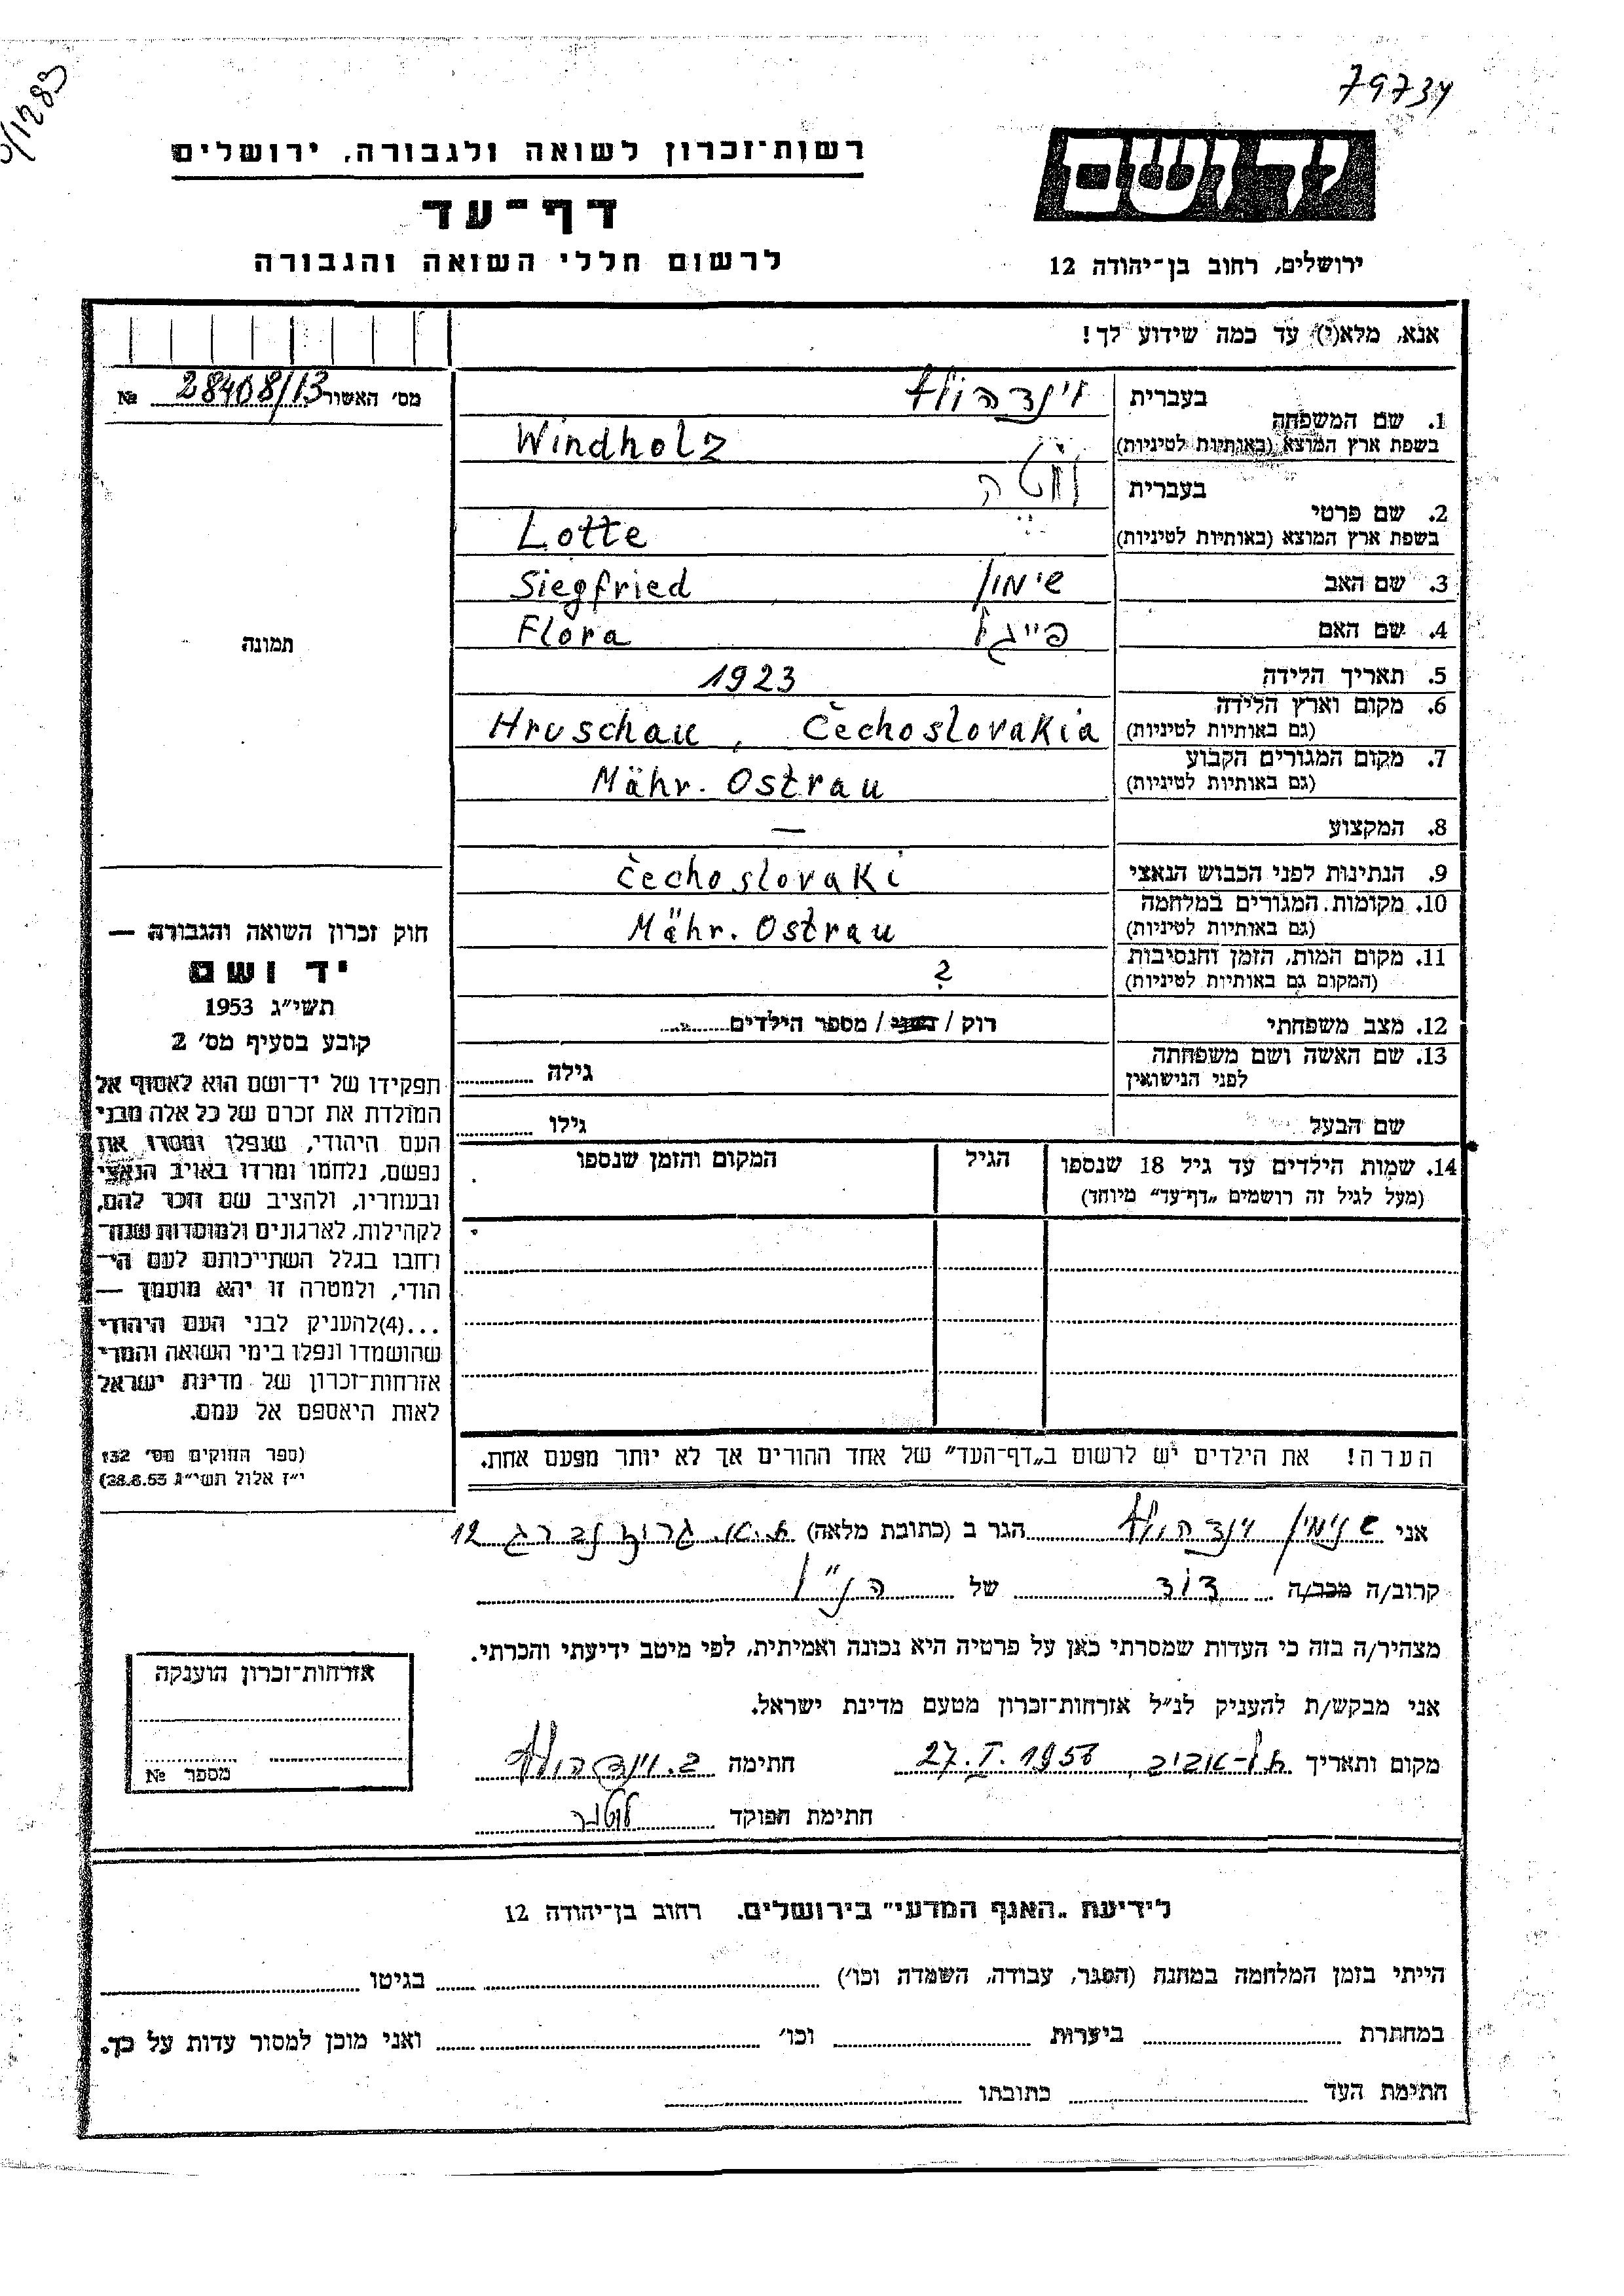 79734
1283
רשות־זכרון לשואה ולגבורה, ירושלים
יד ושם
דף־עד
לרשום חללי השואה והגבורה
ירושלים, רחוב בן־יהודה 12
אנא, מלא(י) עד כמה שידוע לך!
מס' האשור 28408/13 №
1. שם המשפחה בעברית וינדהולץ
בשפת ארץ המוצא (באותיות לטיניות) Windholz
2. שם פרטי בעברית לוטה
בשפת ארץ המוצא (באותיות לטיניות) Lotte
3. שם האב שימון Siegfried
4. שם האם פייגל Flora
תמונה
5. תאריך הלידה 1923
6. מקום וארץ הלידה
(גם באותיות לטיניות) Hruschau, Čechoslovakia
7. מקום המגורים הקבוע
(גם באותיות לטיניות) Mähr. Ostrau
8. המקצוע —
9. הנתינות לפני הכבוש הנאצי čechoslovaki
10. מקומות המגורים במלחמה
(גם באותיות לטיניות) Mähr. Ostrau
11. מקום המות, הזמן והנסיבות
(המקום גם באותיות לטיניות) ?
12. מצב משפחתי רוק / נשוי / מספר הילדים
13. שם האשה ושם משפחתה
לפני הנישואין גילה
שם הבעל גילו
חוק זכרון השואה והגבורה —
יד ושם
תשי״ג 1953
קובע בסעיף מס' 2
תפקידו של יד־ושם הוא לאסוף אל
המולדת את זכרם של כל אלה מבני
העם היהודי, שנפלו ומסרו את
נפשם, נלחמו ומרדו באויב הנאצי
ובעוזריו, ולהציב שם וזכר להם,
לקהילות, לארגונים ולמוסדות שנח־
רחבו בגלל השתייכותם לעם הי־
הודי, ולמטרה זו יהא מוסמך —
...(4)להעניק לבני העם היהודי
שהושמדו ונפלו בימי השואה והמרי
אזרחות־זכרון של מדינת ישראל
לאות היאספם אל עמם.
(ספר החוקים מס' 132
י״ז אלול תשי״ג 28.8.53)
14. שמות הילדים עד גיל 18 שנספו הגיל המקום והזמן שנספו
(מעל לגיל זה רושמים „דף־עד״ מיוחד)
הערה! את הילדים יש לרשום ב„דף־העד״ של אחד ההורים אך לא יותר מפעם אחת.
אני וינדהולץ הגר ב (כתובת מלאה) 12
קרוב/ה מכר/ה דוד של הנ״ל
מצהיר/ה בזה כי העדות שמסרתי כאן על פרטיה היא נכונה ואמיתית, לפי מיטב ידיעתי והכרתי.
אני מבקש/ת להעניק לנ״ל אזרחות־זכרון מטעם מדינת ישראל.
מקום ותאריך תל־אביב, חתימה וינדהולץ
חתימת הפוקד
אזרחות־זכרון הוענקה
מספר №
לידיעת „האגף המדעי״ בירושלים, רחוב בן־יהודה 12
הייתי בזמן המלחמה במחנה (הסגר, עבודה, השמדה וכו') בגיטו
במחתרת ביערות וכו' ואני מוכן למסור עדות על כך.
חתימת העד כתובתו